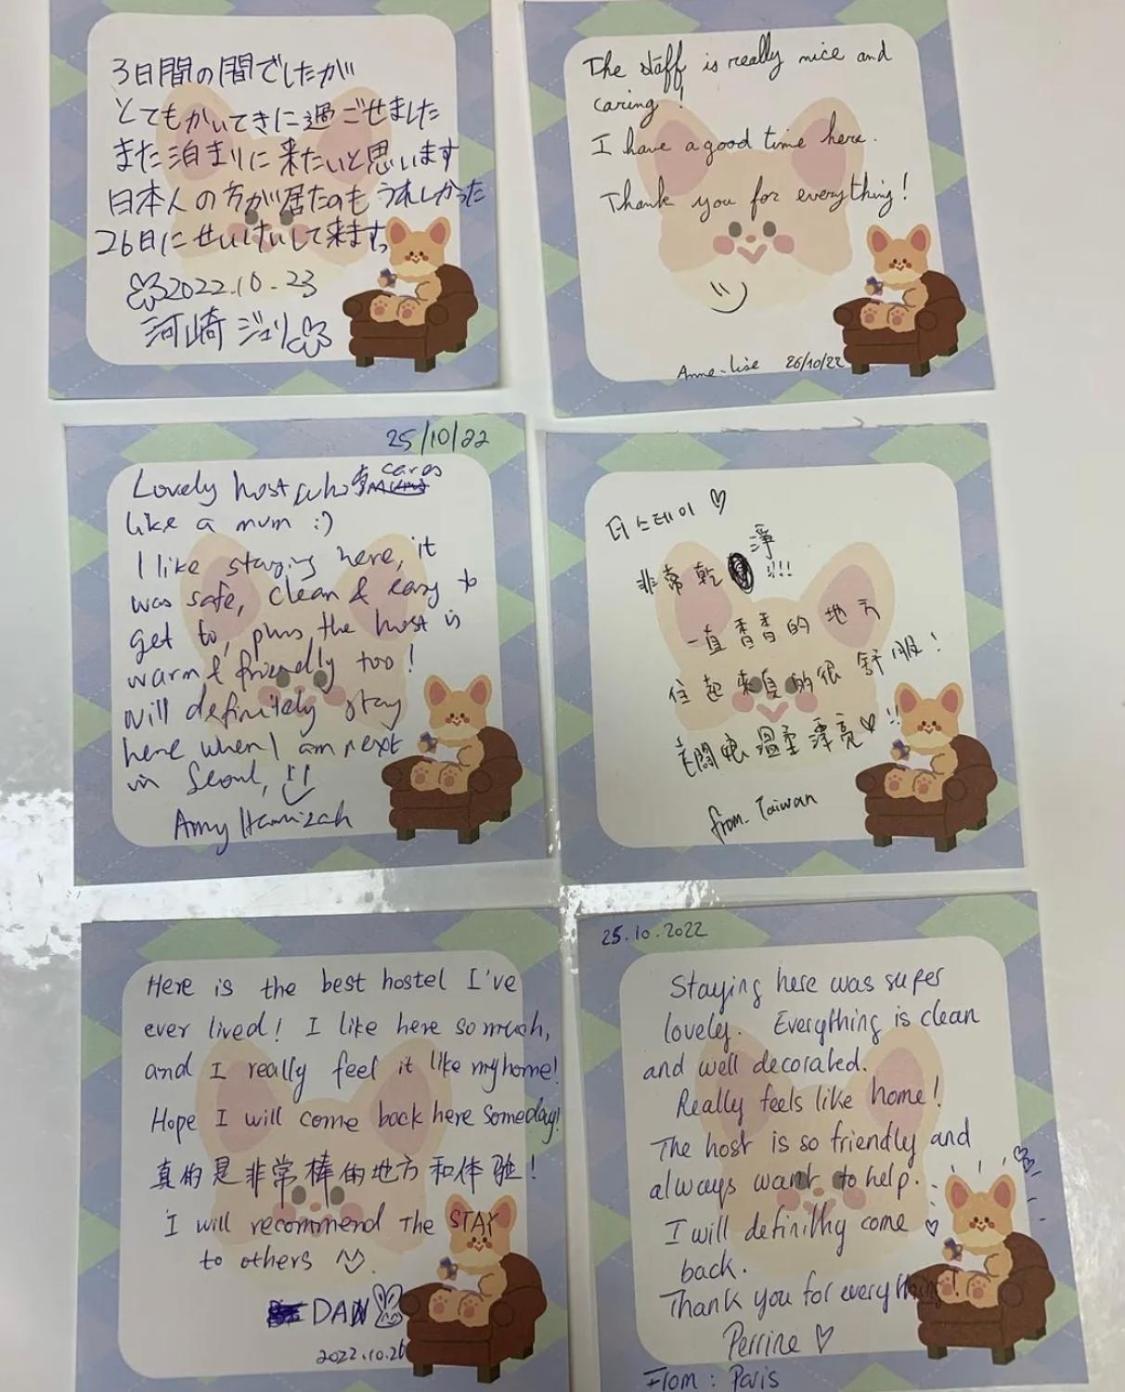 3日間の間でしたが
とてもかいてきに過ごせました
また泊まりに来たいと思います
日本人の方が居たのもうれしかった
26日にせいけいして来ます
2022.10.23
河崎 ジュリ
The staff is really nice and
caring!
I have a good time here.
Thank you for everything!
Anne-Lise 26/10/22
25/10/22
Lovely host who cares
like a mum :)
I like staying here, it
was safe, clean & easy to
get to, plus the host is
warm & friendly too!
Will definitely stay
here when I am next
in Seoul,
Amy Hamizah
더스테이 ♡
非常乾淨!!!
一直香香的地方
住起來真的很舒服!
老闆娘溫柔漂亮♡!!
from. Taiwan
Here is the best hostel I've
ever lived! I like here so much,
and I really feel it like my home!
Hope I will come back here someday!
真的是非常棒的地方和体验!
I will recommend The STAY
to others
DAN
2022.10.26
25.10.2022
Staying here was super
lovely. Everything is clean
and well decorated.
Really feels like home!
The host is so friendly and
always want to help.
I will definithy come ♡
back.
Thank you for everything!
Perrine ♡
From: Paris